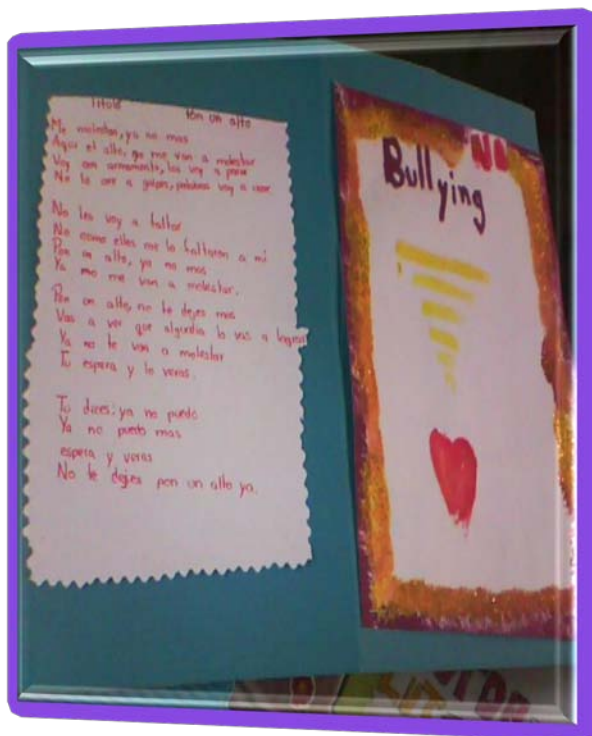 Titulo pon un alto
Me molestan, ya no mas
Aqui el alto, ya me van a molestar
Voy con armamento, los voy a parar
No lo are a golpes, palabras voy a usar
No les voy a faltar
No como ellos me lo faltaron a mi
Pon un alto, ya no mas
Ya mo me van a molestar.
Pon un alto, no te dejes mas
Vas a ver que algundia lo vas a lograr
Ya no te van a molestar
Tu espera y lo veras.
Tu dices: ya no puedo
Ya no puedo mas
espera y veras
No te dejes pon un alto ya.
NO
Bullying